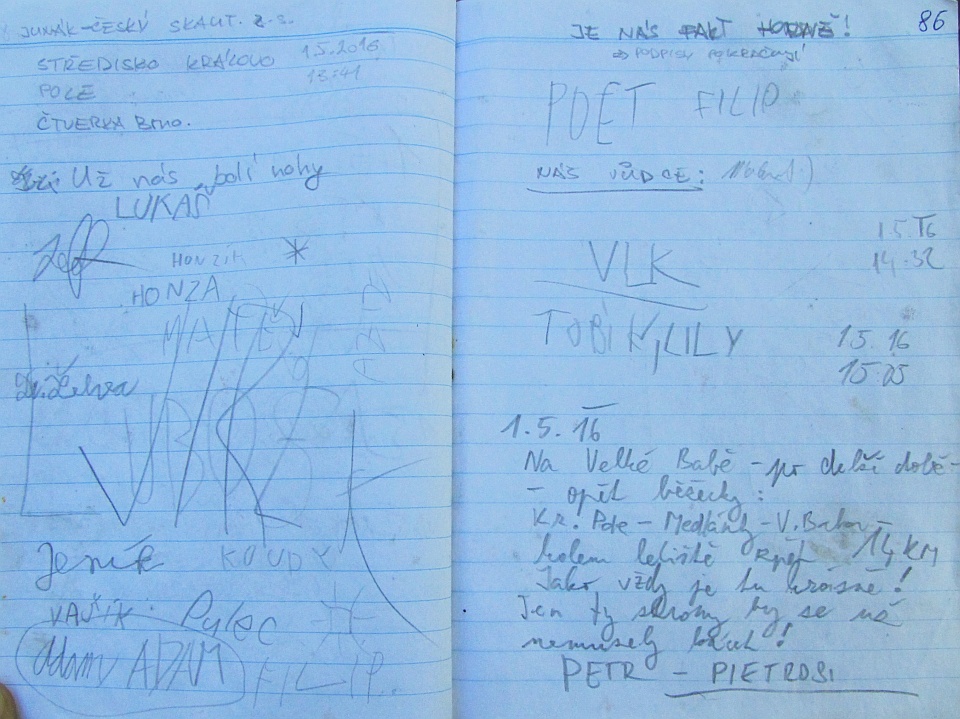 JUNÁK-ČESKÝ SKAUT. z.s.
STŘEDISKO KRÁLOVO 1.5.2016
POLE 13:41
ČTVERKA Brno.
Už nás bolí nohy
LUKÁŠ
HONZÍK
HONZA
MATĚJ
LUBOŠ
Jeník
KOUDY
VAŠÍK
Pylec
Adam ADAM
FILIP..
86
JE NÁS FAKT HODNĚ!
⇒ PODPISY POKRAČUJÍ
POET FILIP
NÁŠ VŮDCE:
1.5. 16
14.32
VLK
TOBIK, LILY
1.5. 16
15.05
1.5. 16
Na Velké Babě - po delší době -
- opět běžecky:
Kr. Pole - Medlánky - V. Baba -
kolem letiště zpět 14 KM
Jako vždy je tu krásně!
Jen ty stromy by se už
nemusely kácet!
PETR - PIETROSI